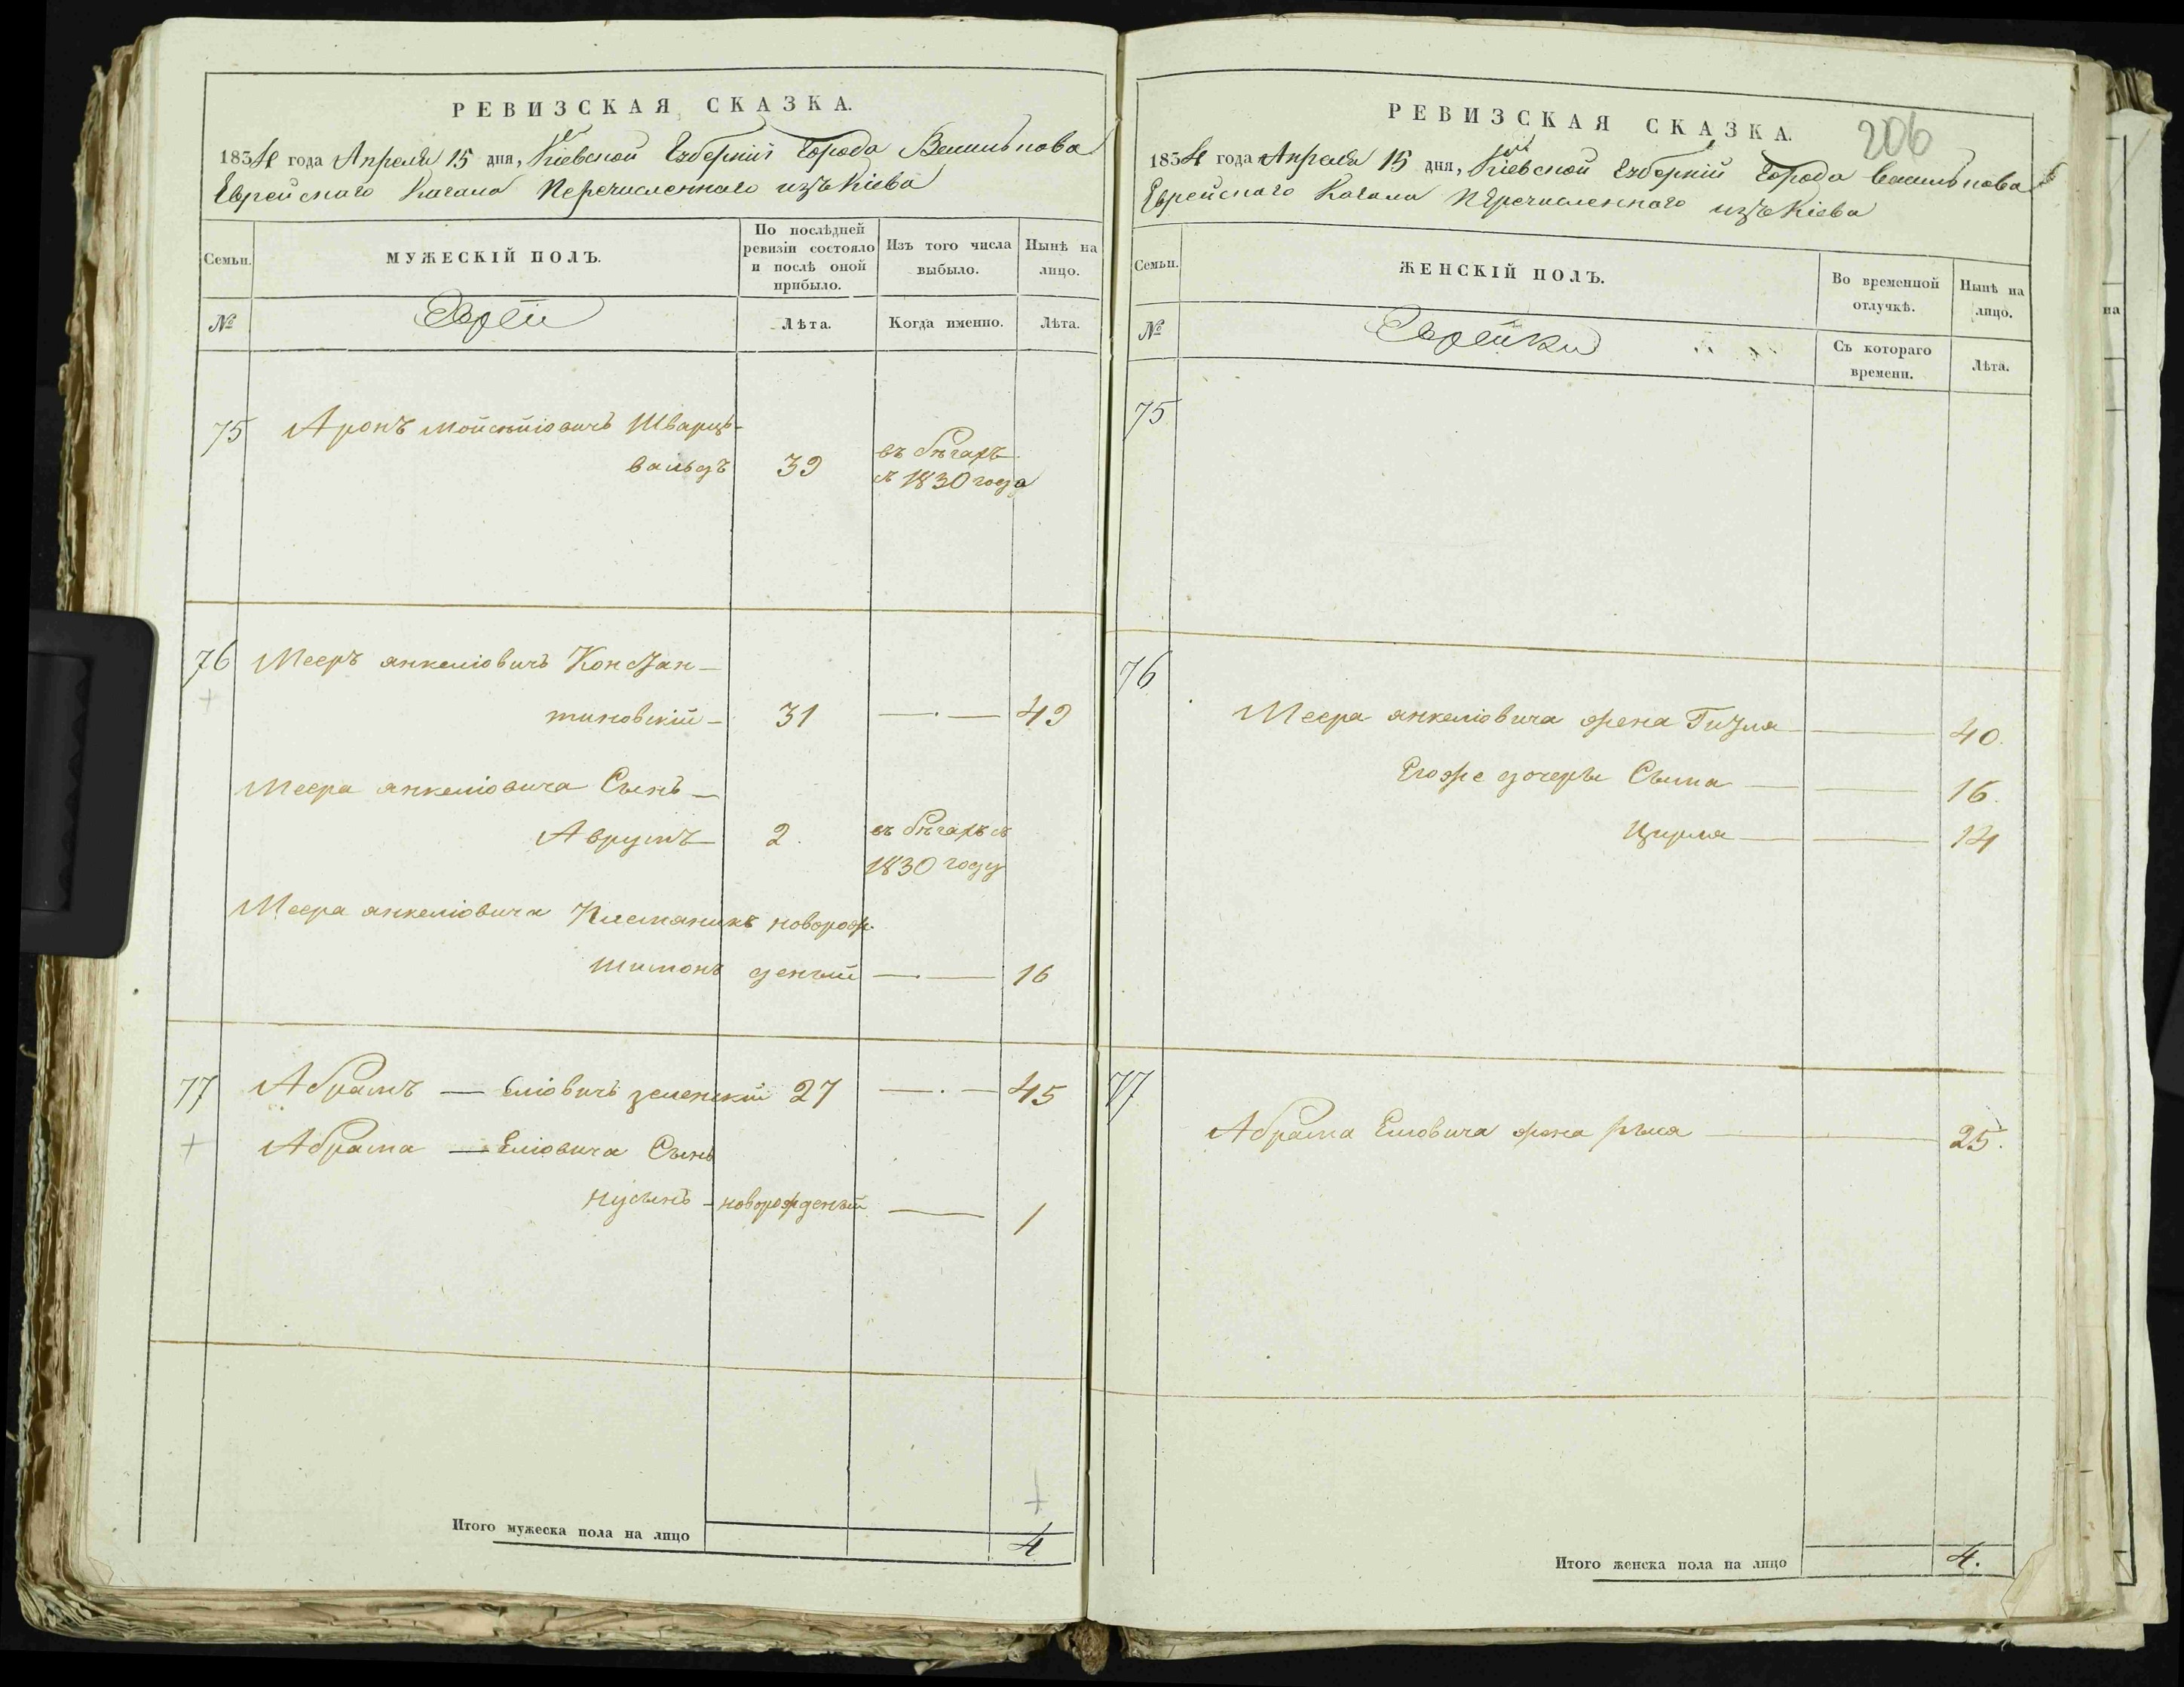 РЕВИЗСКАЯ СКАЗКА.
1834 года Апреля 15 дня, Кіевской Губерніи Города Василькова
Еврейскаго Кагала Перечисленнаго изъ Кіева
Семьи.
МУЖЕСКІЙ ПОЛЪ.
По послѣдней ревизіи состояло и послѣ оной прибыло.
Изъ того числа выбыло.
Нынѣ на лицо.
№
Евреи
Лѣта.
Когда именно.
Лѣта.
75 Аронъ Мойсѣйіовичъ Шварцъ-
вальдъ 39 въ бѣгахъ
съ 1830 года
76 Мееръ янкеліовичъ Констан-
тиновскій 31 — 49
Меера янкеліовича Сынъ
Аврумъ 2. въ бѣгахъ съ
1830 году
Меера янкеліовича Племяникъ новорож-
Шимонъ деный — 16
77 Абрамъ — еліовичъ зеленскій 27 — 45
Абрама — Еліовича Сынъ
нусынъ - новорожденый — 1
Итого мужеска пола на лицо 4
РЕВИЗСКАЯ СКАЗКА.
206
1834 года Апреля 15 дня, Кіевской Губерніи Города Василькова
Еврейскаго Кагала Перечисленнаго изъ Кіева
Семьи.
ЖЕНСКІЙ ПОЛЪ.
Во временной отлучкѣ.
Нынѣ на лицо.
№
Еврейки
Съ котораго времени.
Лѣта.
75
76
Меера янкеліовича жена Гизля — 40.
Егоже дочеры Сыма — 16.
Цирля — 14
77
Абрама Еліовича жена — 25.
Итого женска пола на лицо 4.